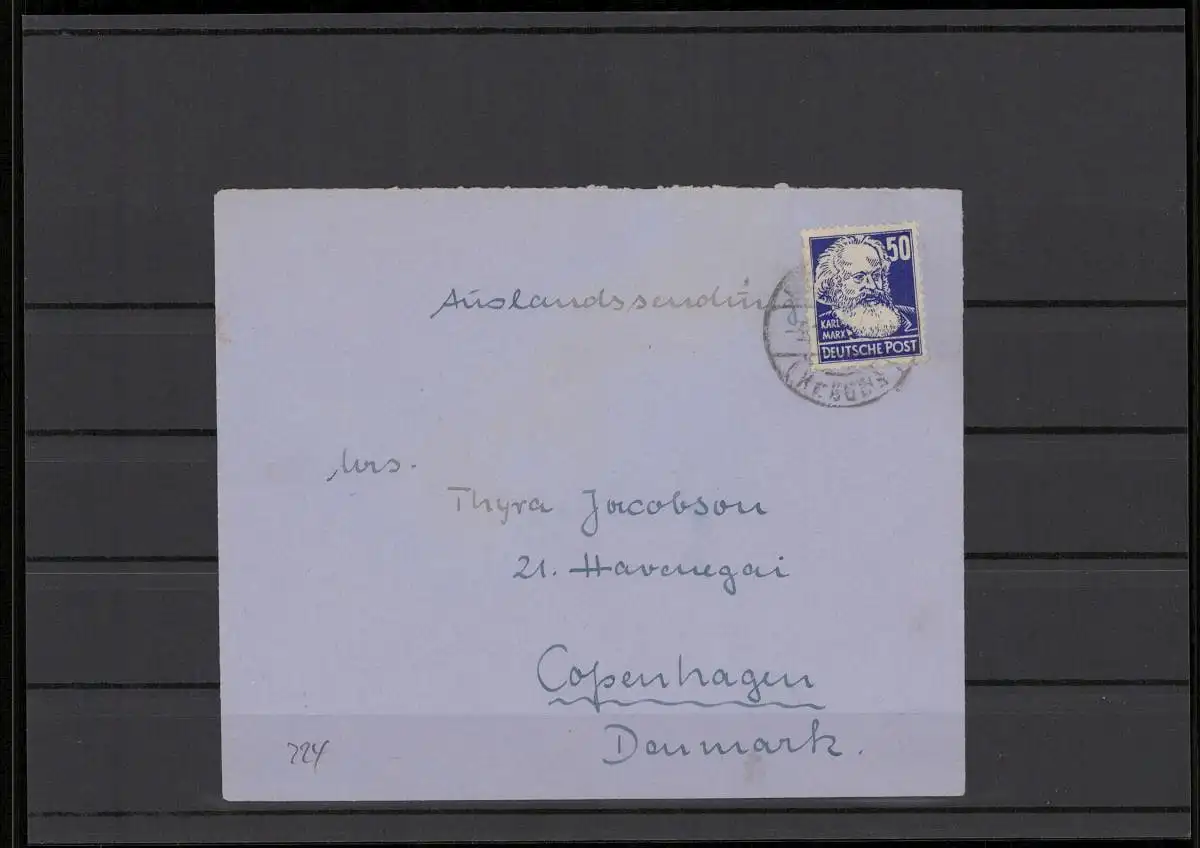 Auslandssendun
50
KARL
MARX
DEUTSCHE POST
Mrs.
Thyra Jacobson
21. Havenegai
Copenhagen
Denmark.
724